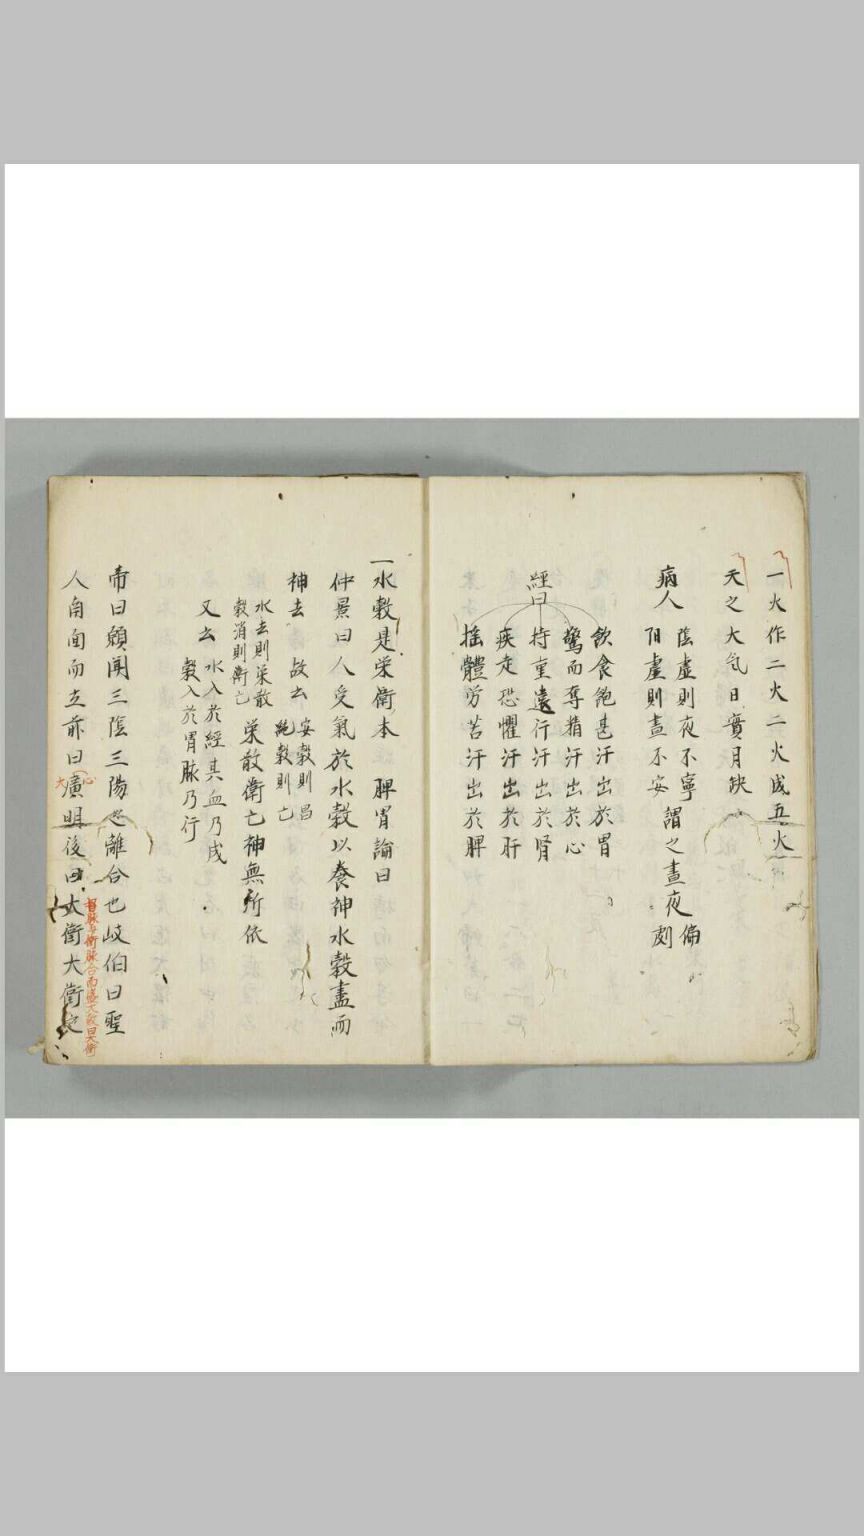 一火作二火二火成五火
天之大気日實月缺
病人
陰虛則夜不寧
阳虛則晝不安
謂之晝夜偏
劇
經曰
飲食飽甚汗出於胃
驚而奪精汗出於心
持重遠行汗出於腎
疾走恐懼汗出於肝
揺體労苦汗出於脾
一水穀是栄衛本 脾胃論曰
仲景曰人受氣於水穀以養神水穀盡而
神去 故云
安穀則昌
絶穀則亡
水去則栄散
穀消則衛亡
栄散衛亡神無所依
又云
水入於經其血乃成
穀入於胃脉乃行
帝曰願聞三陰三陽之離合也岐伯曰聖
人南面而立前曰廣明後曰大衝大衝之
心
大
腎脉与衝脉合而盛大故曰大衝